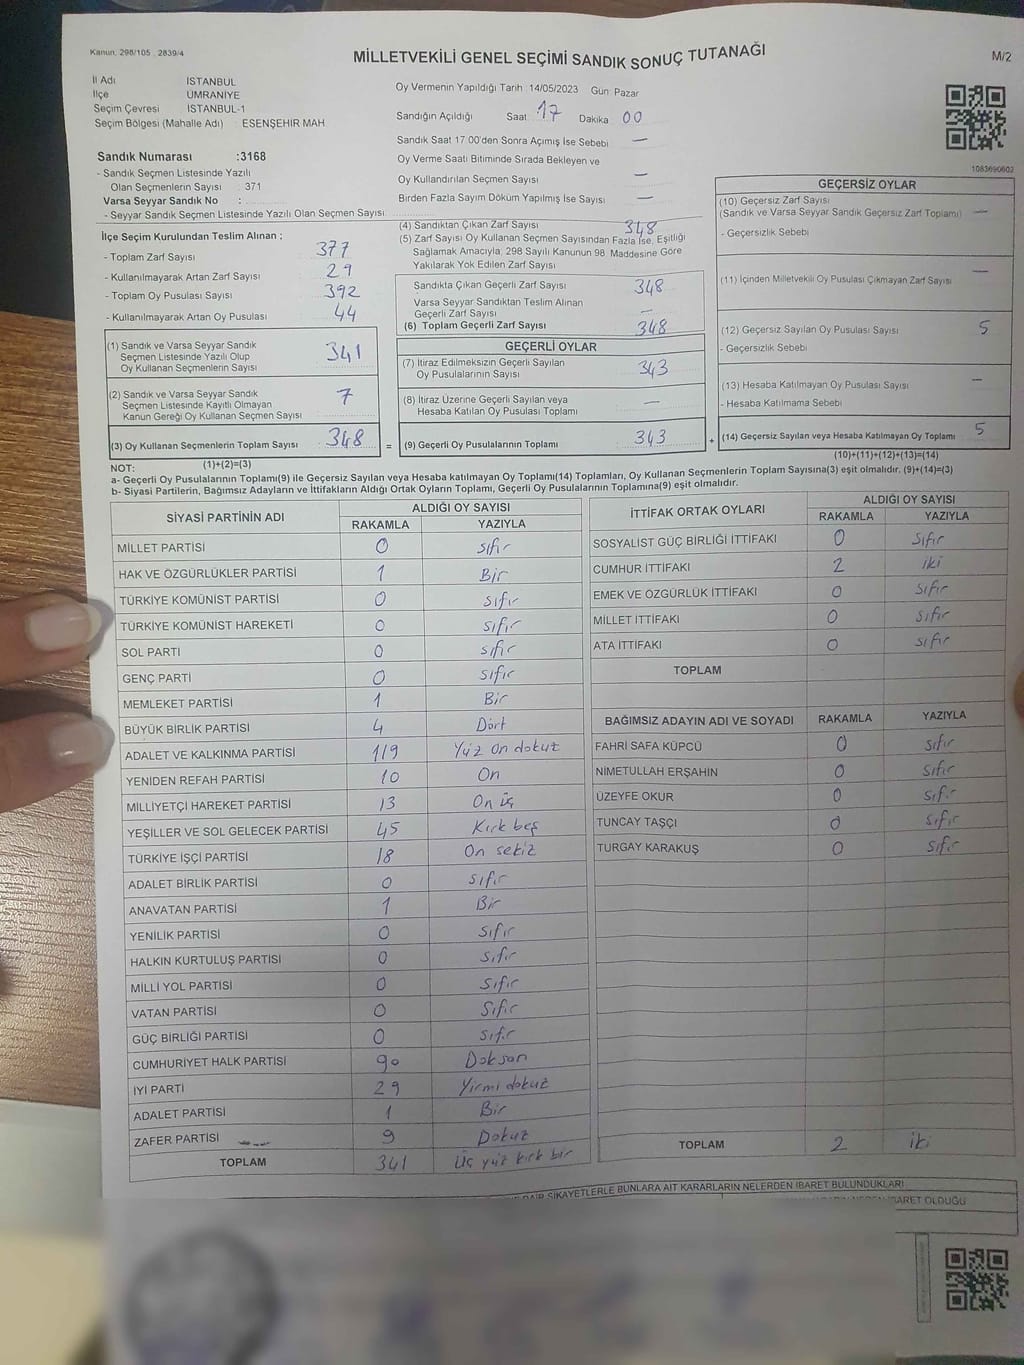 Kanun. 298/105 2839/4
MİLLETVEKİLİ GENEL SEÇİMİ SANDIK SONUÇ TUTANAĞI
M/2
İl Adı İSTANBUL
İlçe ÜMRANİYE
Seçim Çevresi İSTANBUL-1
Seçim Bölgesi (Mahalle Adı) : ESENŞEHİR MAH
Oy Vermenin Yapıldığı Tarih 14/05/2023 Gün: Pazar
Sandığın Açıldığı Saat 17 Dakika 00
Sandık Saat 17 00'den Sonra Açımış İse Sebebi —
Oy Verme Saati Bitiminde Sırada Bekleyen ve
Oy Kullandırılan Seçmen Sayısı —
Birden Fazla Sayım Döküm Yapılmış İse Sayısı —
1083690602
Sandık Numarası :3168
- Sandık Seçmen Listesinde Yazılı
Olan Seçmenlerin Sayısı : 371
Varsa Seyyar Sandık No :
- Seyyar Sandık Seçmen Listesinde Yazılı Olan Seçmen Sayısı
İlçe Seçim Kurulundan Teslim Alınan ;
- Toplam Zarf Sayısı 377
- Kullanılmayarak Artan Zarf Sayısı 29
- Toplam Oy Pusulası Sayısı 392
- Kullanılmayarak Artan Oy Pusulası 44
(1) Sandık ve Varsa Seyyar Sandık
Seçmen Listesinde Yazılı Olup
Oy Kullanan Seçmenlerin Sayısı 341
(2) Sandık ve Varsa Seyyar Sandık
Seçmen Listesinde Kayıtlı Olmayan
Kanun Gereği Oy Kullanan Seçmen Sayısı 7
(3) Oy Kullanan Seçmenlerin Toplam Sayısı 348 =
(1)+(2)=(3)
(4) Sandıktan Çıkan Zarf Sayısı 348
(5) Zarf Sayısı Oy Kullanan Seçmen Sayısından Fazla İse, Eşitliği
Sağlamak Amacıyla; 298 Sayılı Kanunun 98 Maddesine Göre
Yakılarak Yok Edilen Zarf Sayısı
Sandıkta Çıkan Geçerli Zarf Sayısı 348
Varsa Seyyar Sandıktan Teslim Alınan
Geçerli Zarf Sayısı —
(6) Toplam Geçerli Zarf Sayısı 348
GEÇERLİ OYLAR
(7) İtiraz Edilmeksizin Geçerli Sayılan
Oy Pusulalarının Sayısı 343
(8) İtiraz Üzerine Geçerli Sayılan veya
Hesaba Katılan Oy Pusulası Toplamı —
(9) Geçerli Oy Pusulalarının Toplamı 343 +
GEÇERSİZ OYLAR
(10) Geçersiz Zarf Sayısı
(Sandık ve Varsa Seyyar Sandık Geçersiz Zarf Toplamı) —
- Geçersizlik Sebebi
(11) İçinden Milletvekili Oy Pusulası Çıkmayan Zarf Sayısı —
(12) Geçersiz Sayılan Oy Pusulası Sayısı 5
- Geçersizlik Sebebi
(13) Hesaba Katılmayan Oy Pusulası Sayısı —
- Hesaba Katılmama Sebebi
(14) Geçersiz Sayılan veya Hesaba Katılmayan Oy Toplamı 5
(10)+(11)+(12)+(13)=(14)
NOT:
a- Geçerli Oy Pusulalarının Toplamı(9) ile Geçersiz Sayılan veya Hesaba katılmayan Oy Toplamı(14) Toplamları, Oy Kullanan Seçmenlerin Toplam Sayısına(3) eşit olmalıdır. (9)+(14)=(3)
b- Siyasi Partilerin, Bağımsız Adayların ve İttifakların Aldığı Ortak Oyların Toplamı, Geçerli Oy Pusulalarının Toplamına(9) eşit olmalıdır.
SİYASİ PARTİNİN ADI ALDIĞI OY SAYISI
RAKAMLA YAZIYLA
MİLLET PARTİSİ 0 sıfır
HAK VE ÖZGÜRLÜKLER PARTİSİ 1 Bir
TÜRKİYE KOMÜNİST PARTİSİ 0 sıfır
TÜRKİYE KOMÜNİST HAREKETİ 0 sıfır
SOL PARTİ 0 sıfır
GENÇ PARTİ 0 sıfır
MEMLEKET PARTİSİ 1 Bir
BÜYÜK BİRLİK PARTİSİ 4 Dört
ADALET VE KALKINMA PARTİSİ 119 Yüz On dokuz
YENİDEN REFAH PARTİSİ 10 On
MİLLİYETÇİ HAREKET PARTİSİ 13 On üç
YEŞİLLER VE SOL GELECEK PARTİSİ 45 Kırk beş
TÜRKİYE İŞÇİ PARTİSİ 18 On sekiz
ADALET BİRLİK PARTİSİ 0 sıfır
ANAVATAN PARTİSİ 1 Bir
YENİLİK PARTİSİ 0 sıfır
HALKIN KURTULUŞ PARTİSİ 0 sıfır
MİLLİ YOL PARTİSİ 0 sıfır
VATAN PARTİSİ 0 sıfır
GÜÇ BİRLİĞİ PARTİSİ 0 sıfır
CUMHURİYET HALK PARTİSİ 90 Doksan
İYİ PARTİ 29 Yirmi dokuz
ADALET PARTİSİ 1 Bir
ZAFER PARTİSİ 9 Dokuz
TOPLAM 341 Üç yüz kırk bir
İTTİFAK ORTAK OYLARI ALDIĞI OY SAYISI
RAKAMLA YAZIYLA
SOSYALİST GÜÇ BİRLİĞİ İTTİFAKI 0 sıfır
CUMHUR İTTİFAKI 2 iki
EMEK VE ÖZGÜRLÜK İTTİFAKI 0 sıfır
MİLLET İTTİFAKI 0 sıfır
ATA İTTİFAKI 0 sıfır
TOPLAM
BAĞIMSIZ ADAYIN ADI VE SOYADI RAKAMLA YAZIYLA
FAHRİ SAFA KÜPCÜ 0 sıfır
NİMETULLAH ERŞAHİN 0 sıfır
ÜZEYFE OKUR 0 sıfır
TUNCAY TAŞÇI 0 sıfır
TURGAY KARAKUŞ 0 sıfır
TOPLAM 2 iki
ŞİKAYETLERLE BUNLARA AİT KARARLARIN NELERDEN İBARET BULUNDUKLARI
İBARET OLDUĞU